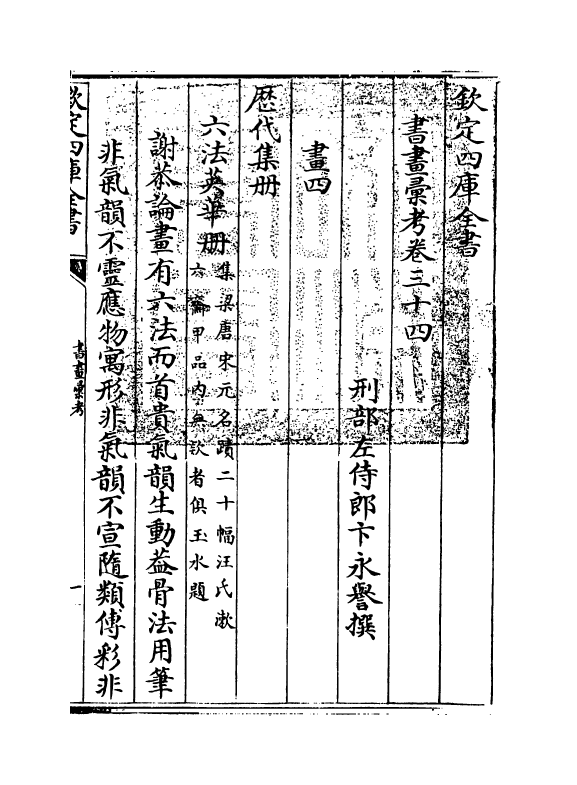 欽定四庫全書
書畫彙考卷三十四
刑部左侍郎卞永譽撰
畫四
歴代集册
六法英華册
集梁唐宋元名蹟二十幅汪氏漱
六齋甲品内無款者俱玉水題
謝㳟論畫有六法而首貴氣韻生動葢骨法用筆
非氣韻不靈應物寓形非氣韻不宣隨類傅彩非
欽定四庫全書
書畫彙考
一